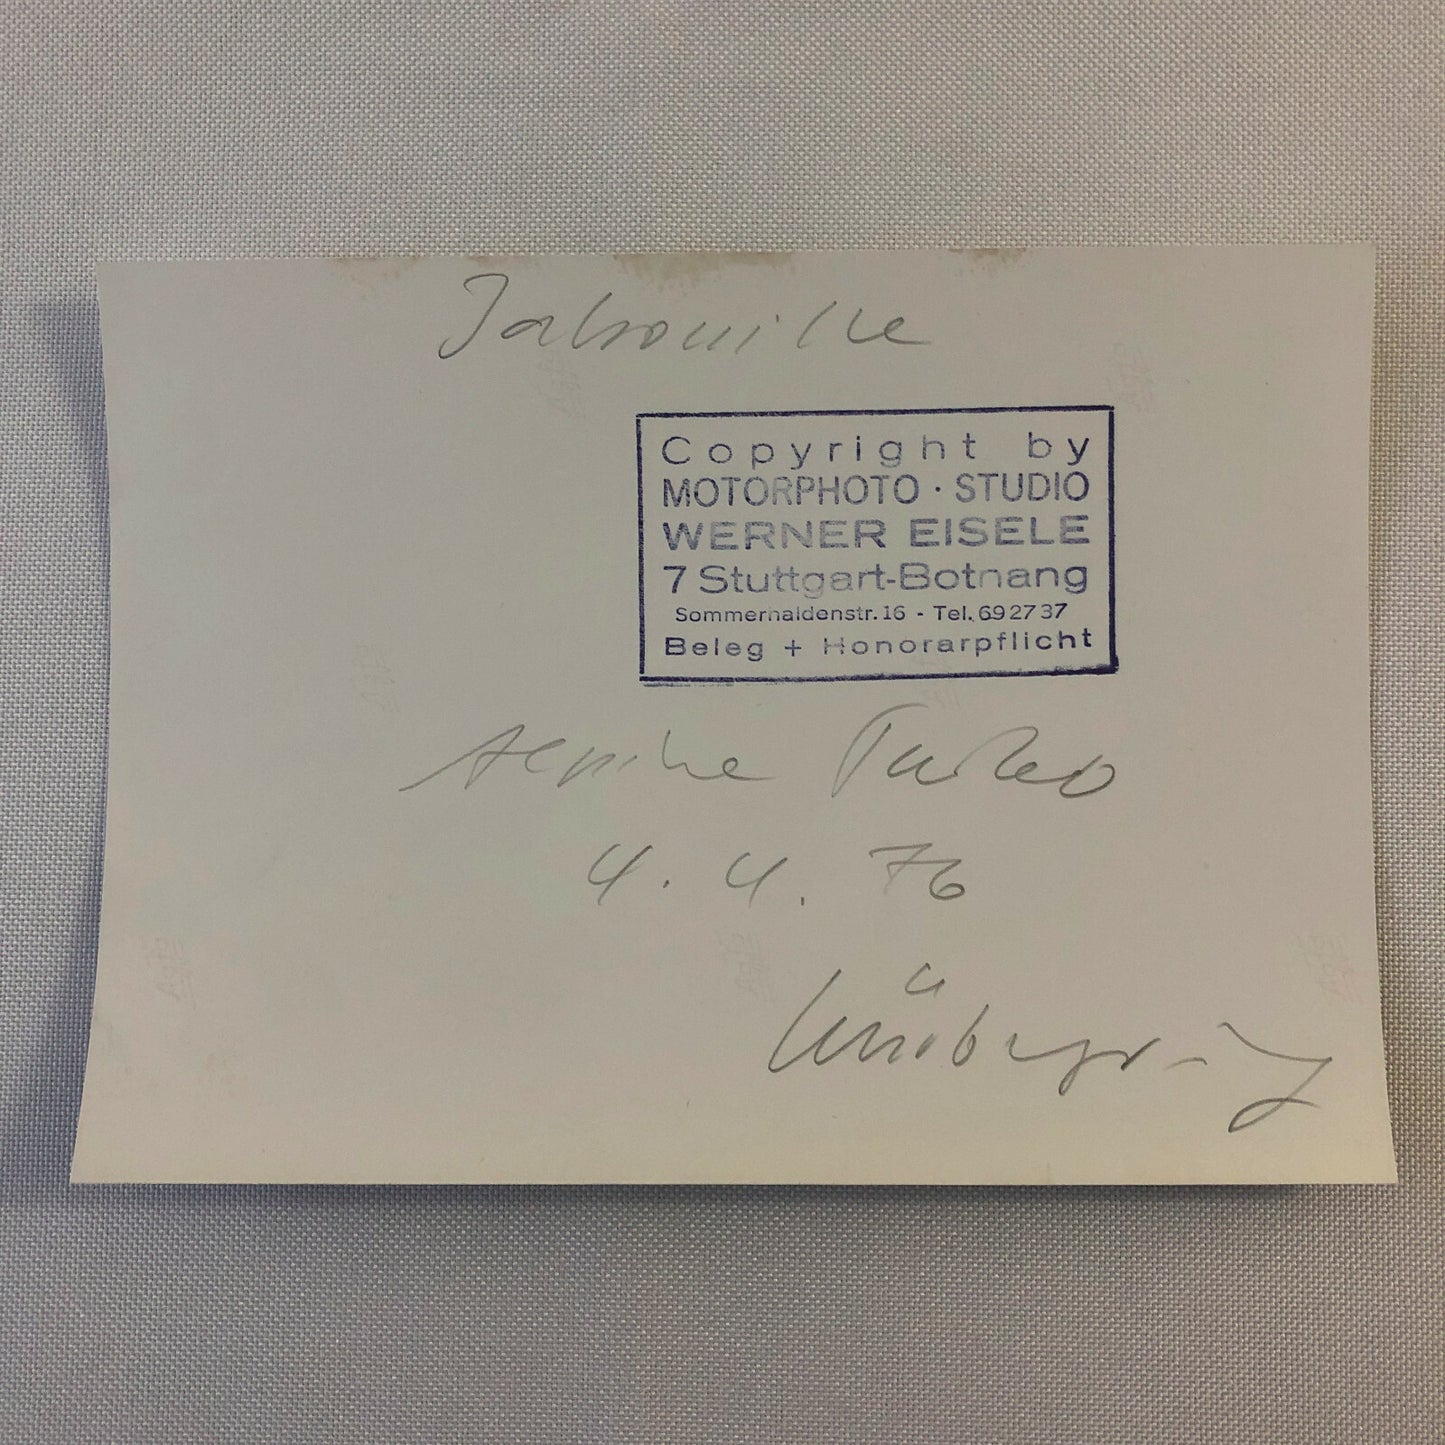 Jabouille
Copyright by
MOTORPHOTO · STUDIO
WERNER EISELE
7 Stuttgart-Botnang
Sommerhaldenstr. 16 - Tel. 69 27 37
Beleg + Honorarpflicht
Alpine Turbo
4. 4. 76
Nürburgring